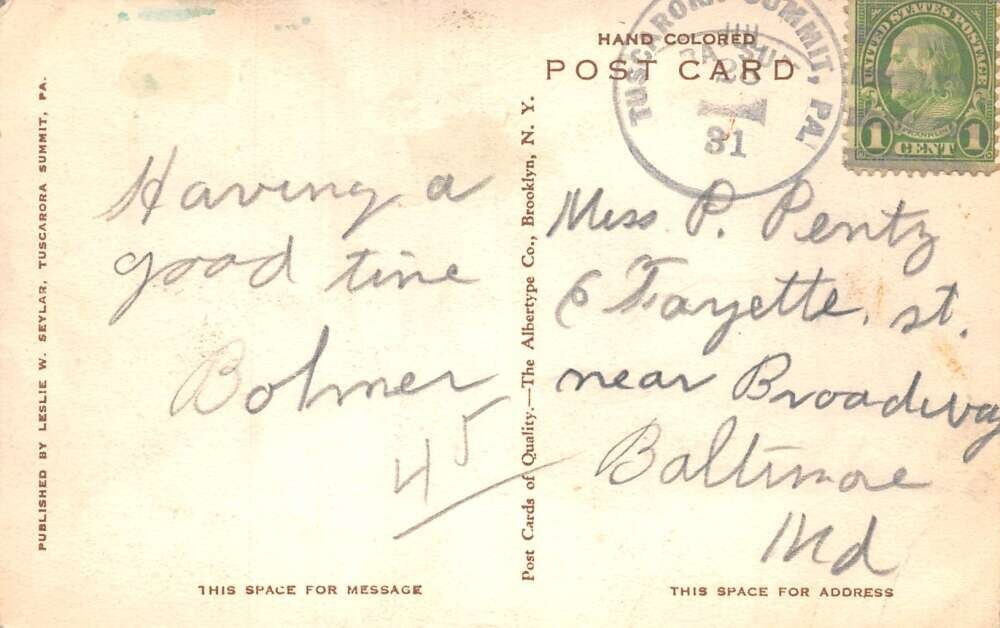 PUBLISHED BY LESLIE W. SEYLAR, TUSCARORA SUMMIT, PA.
HAND COLORED
POST CARD
TUSCARORA SUMMIT, PA.
31
UNITED STATES POSTAGE
1 CENT 1
Having a
good time
Bohner
45
Post Cards of Quality.—The Albertype Co., Brooklyn, N. Y.
Miss P. Pentz
E Fayette, st.
near Broadway
Baltimore
Md
THIS SPACE FOR MESSAGE
THIS SPACE FOR ADDRESS